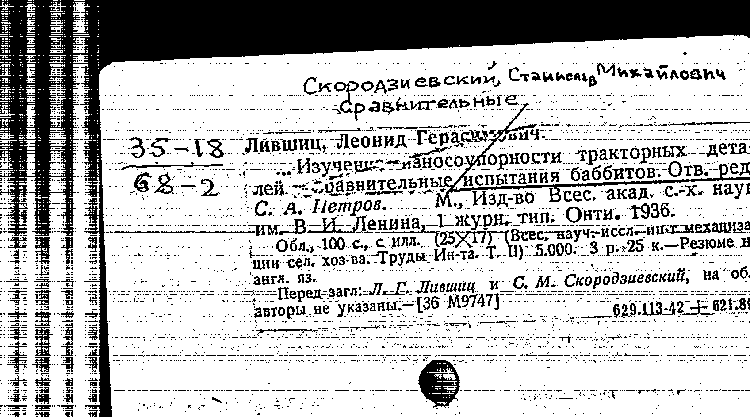 Скородзиевский, Станислав Михайлович
Сравнительные
35-18
68-2
Лившиц, Леонид Герасимович.
...Изучение износоупорности тракторных дета-
лей — Сравнительные испытания баббитов. Отв. ред.
С. А. Петров. М., Изд-во Всес. акад. с.-х. наук
им. В. И. Ленина, 1 журн. тип. Онти. 1936.
Обл., 100 с., с илл. (25×17) (Всес. науч.-иссл. ин-т механиза-
ции сел. хоз-ва. Труды Ин-та. Т. II) 5.000. 3 р. 25 к.—Резюме н
англ. яз.
Перед загл: Л. Г. Лившиц и С. М. Скородзиевский, на об
авторы не указаны.—[36 М9747]
629.113-42 + 621.89